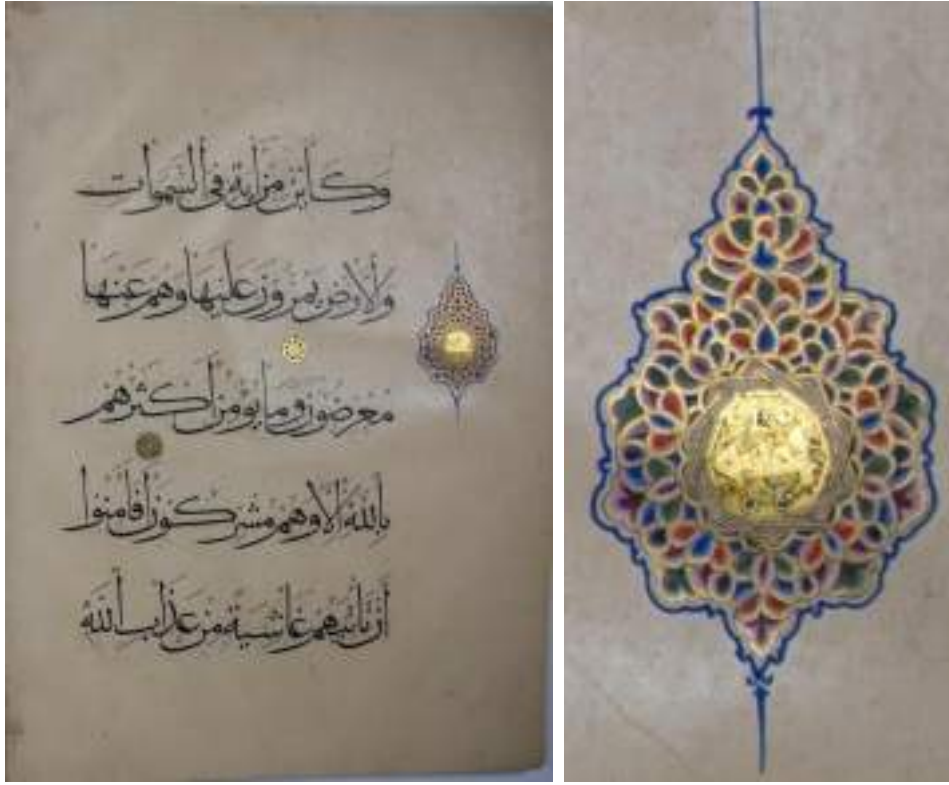 وَكَأَيِّن مِّنْ آيَةٍ فِي السَّمَوَاتِ
وَالْأَرْضِ يَمُرُّونَ عَلَيْهَا وَهُمْ عَنْهَا
مُعْرِضُونَ وَمَا يُؤْمِنُ أَكْثَرُهُمْ
بِاللَّهِ إِلَّا وَهُم مُّشْرِكُونَ أَفَأَمِنُوا
أَن تَأْتِيَهُمْ غَاشِيَةٌ مِّنْ عَذَابِ اللَّهِ